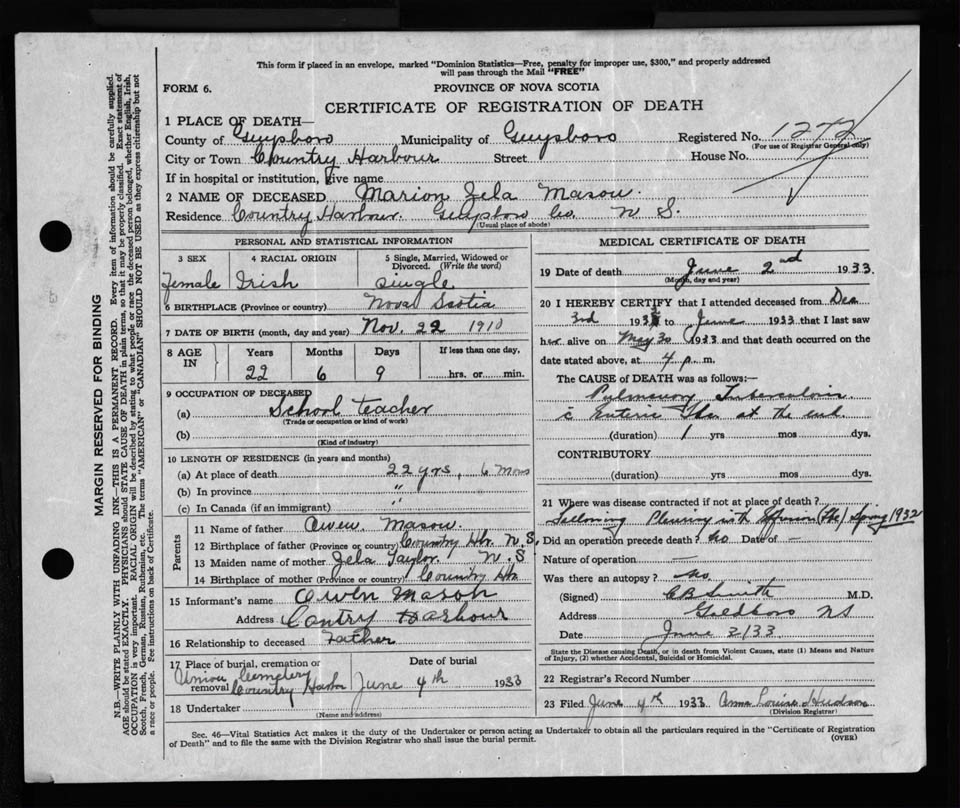 This form if placed in an envelope, marked "Dominion Statistics—Free, penalty for improper use, $300," and properly addressed
will pass through the Mail "FREE"
FORM 6.
PROVINCE OF NOVA SCOTIA
CERTIFICATE OF REGISTRATION OF DEATH
1 PLACE OF DEATH—
County of Guysboro Municipality of Guysboro Registered No. 1272
(For use of Registrar General only)
City or Town Country Harbour Street House No.
If in hospital or institution, give name
2 NAME OF DECEASED Marion Zela Mason.
Residence Country Harbour. Guysboro Co. N S.
(Usual place of abode)
PERSONAL AND STATISTICAL INFORMATION
3 SEX 4 RACIAL ORIGIN 5 Single, Married, Widowed or
Divorced. (Write the word)
female Irish single
6 BIRTHPLACE (Province or country) Nova Scotia
7 DATE OF BIRTH (month, day and year) Nov. 22 1910
8 AGE IN Years Months Days If less than one day,
22 6 9 hrs. or min.
9 OCCUPATION OF DECEASED
(a) School teacher
(Trade or occupation or kind of work)
(b)
(Kind of industry)
10 LENGTH OF RESIDENCE (in years and months)
(a) At place of death 22 yrs, 6 mons
(b) In province "
(c) In Canada (if an immigrant) "
Parents
11 Name of father Owen Mason.
12 Birthplace of father (Province or country) Country Hbr. N.S.
13 Maiden name of mother Zela Taylor. N. S
14 Birthplace of mother (Province or country) Country Hbr
15 Informant's name Owen Mason
Address Contry Harbour
16 Relationship to deceased Father
17 Place of burial, cremation or removal Date of burial
Union Cemetery
Country Harbor June 4th 1933
18 Undertaker
(Name and address)
MEDICAL CERTIFICATE OF DEATH
19 Date of death June 2nd 1933.
(Month, day and year)
20 I HEREBY CERTIFY that I attended deceased from Dec
3rd 1932 to June 1933 that I last saw
her alive on May 30 1933 and that death occurred on the
date stated above, at 4 p. m.
The CAUSE OF DEATH was as follows:—
Pulmonary Tuberculosis
c Enteric Tbc. at the end.
(duration) 1 yrs mos dys.
CONTRIBUTORY
(duration) yrs mos dys.
21 Where was disease contracted if not at place of death?
Following Pleurisy with Effusion (Tbc) Spring 1932
Did an operation precede death? No Date of —
Nature of operation —
Was there an autopsy? No.
(Signed) C B Smith M.D.
Address Goldboro NS
Date June 3/33
State the Disease causing Death, or in death from Violent Causes, state (1) Means and Nature
of Injury, (2) whether Accidental, Suicidal or Homicidal.
22 Registrar's Record Number
23 Filed June 4th 1933 Anna Louise Hudson
(Division Registrar)
Sec. 46—Vital Statistics Act makes it the duty of the Undertaker or person acting as Undertaker to obtain all the particulars required in the "Certificate of Registration
of Death" and to file the same with the Division Registrar who shall issue the burial permit. (OVER)
MARGIN RESERVED FOR BINDING
N.B.—WRITE PLAINLY WITH UNFADING INK—THIS IS A PERMANENT RECORD. Every item of information should be carefully supplied.
AGE should be stated EXACTLY. PHYSICIANS should STATE CAUSE OF DEATH in plain terms, so that it may be properly classified. Exact statement of
OCCUPATION is very important. RACIAL ORIGIN will be described by stating to what people or race the deceased person belonged, whether English, Irish,
Scotch, French, German, Russian, Ruthenian, etc. The terms "AMERICAN" or "CANADIAN" SHOULD NOT BE USED as they express citizenship but not
a race or people. See instructions on back of Certificate.